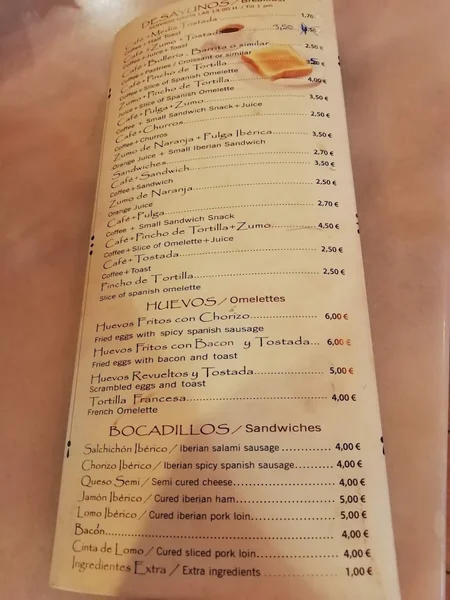 DESAYUNOS / Breakfast
Café + Media Tostada 1,70
Coffee + Half Toast
Café + Zumo + Tostada 3,50
Coffee + Juice + Toast
Café + Bollería - Barrita o similar 2,50 €
Coffee + Pastries / Croissant or similar
Café + Pincho de Tortilla
Coffee + Slice of Spanish Omelette
Zumo + Pincho de Tortilla 4,00 €
Juice + Slice of Spanish Omelette
Café + Pulga + Zumo 3,50 €
Coffee + Small Sandwich Snack + Juice
Café + Churros 2,50 €
Coffee + Churros
Zumo de Naranja + Pulga Ibérica 3,50 €
Orange Juice + Small Iberian Sandwich
Sandwiches 2,70 €
Café + Sandwich 3,50 €
Coffee + Sandwich
Zumo de Naranja 2,50 €
Orange Juice
Café + Pulga 2,70 €
Coffee + Small Sandwich Snack
Café + Pincho de Tortilla + Zumo 4,50 €
Coffee + Slice of Omelette + Juice
Café + Tostada 2,50 €
Coffee + Toast
Pincho de Tortilla 2,50 €
Slice of spanish omelette
HUEVOS / Omelettes
Huevos Fritos con Chorizo 6,00 €
Fried eggs with spicy spanish sausage
Huevos Fritos con Bacon y Tostada... 6,00 €
Fried eggs with bacon and toast
Huevos Revueltos y Tostada 5,00 €
Scrambled eggs and toast
Tortilla Francesa 4,00 €
French Omelette
BOCADILLOS / Sandwiches
Salchichón Ibérico / Iberian salami sausage 4,00 €
Chorizo Ibérico / Iberian spicy spanish sausage 4,00 €
Queso Semi / Semi cured cheese 4,00 €
Jamón Ibérico / Cured iberian ham 5,00 €
Lomo Ibérico / Cured iberian pork loin 5,00 €
Bacón 4,00 €
Cinta de Lomo / Cured sliced pork loin 4,00 €
Ingredientes Extra / Extra ingredients 1,00 €